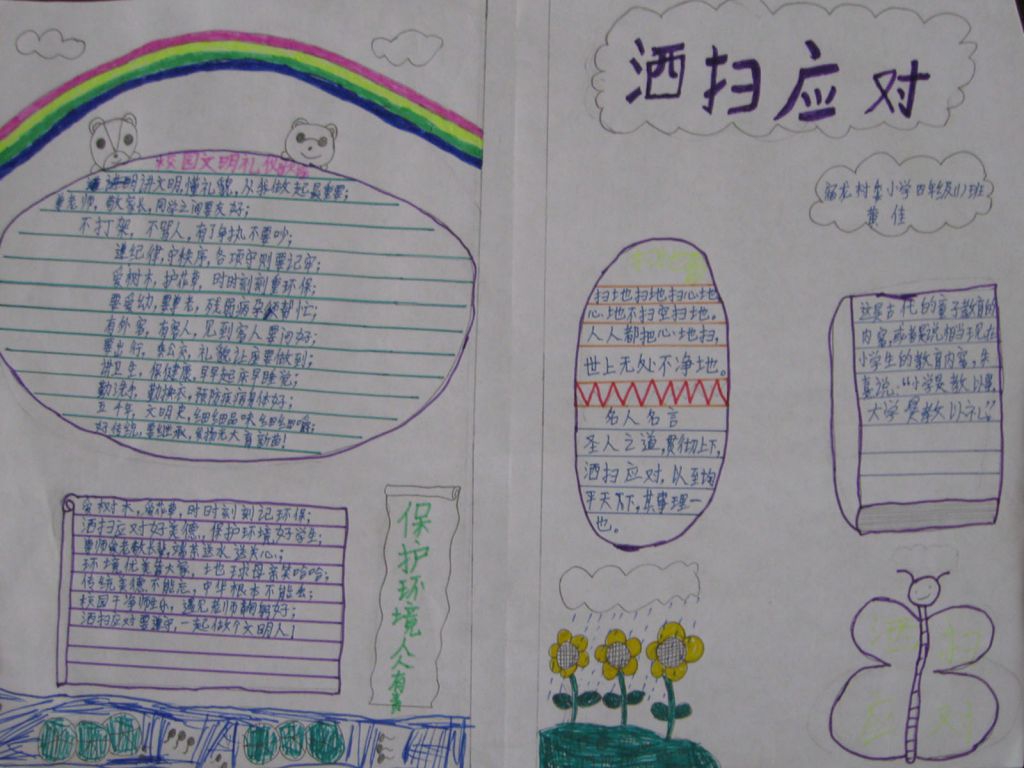 校园文明礼仪
讲文明,懂礼貌,从我做起最重要;
老师,敬家长,同学之间要友好;
不打架,不骂人,有了争执不要吵;
遵纪律,守秩序,各项守则要记牢;
爱树木,护花草,时时刻刻重环保;
要爱幼,要尊老,残弱病孕帮忙;
有外宾,有客人,见到客人要问好;
要出行,乘公交,礼貌让座要做到;
讲卫生,保健康,早早起床早睡觉;
勤洗手,勤换衣,预防疾病身体好;
五千年,文明史,细细品味
好传统,要继承,发扬光大有
爱树木,爱花草,时时刻刻记环保;
洒扫应对好美德,保护环境好学生;
尊师爱老敬长辈,端茶送水送关心;
环境优美靠大家,地球母亲笑哈哈;
传统美德不能忘,中华根本不能丢;
校园干净师生乐,遇见老师问好;
洒扫应对要遵守,一起做个文明人;
保护环境人人有责
洒扫应对
村委小学四年级(1)班
黄佳
扫地扫地扫心地
心地不扫空扫地。
人人都把心地扫,
世上无处不净地。
名人名言
圣人之道,贯彻上下,
洒扫应对,以至均
平天下,其事理一
也。
这是古代的童子教育的
内容,或者是说相当于现在
小学生的教育内容,朱
熹说:“小学是教以事,
大学是教以礼。”
洒 扫
应 对